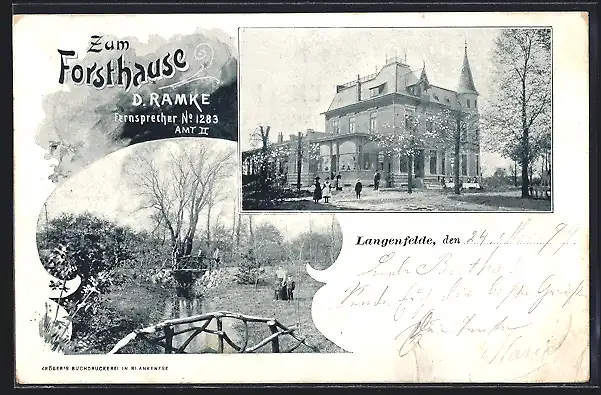 Zum
Forsthause
D. RAMKE
Fernsprecher No 1283
AMT II
Langenfelde, den 24.
Liebe Bertha!
Sende Euch die besten Grüße
KRÖGER'S BUCHDRUCKEREI IN BLANKENESE